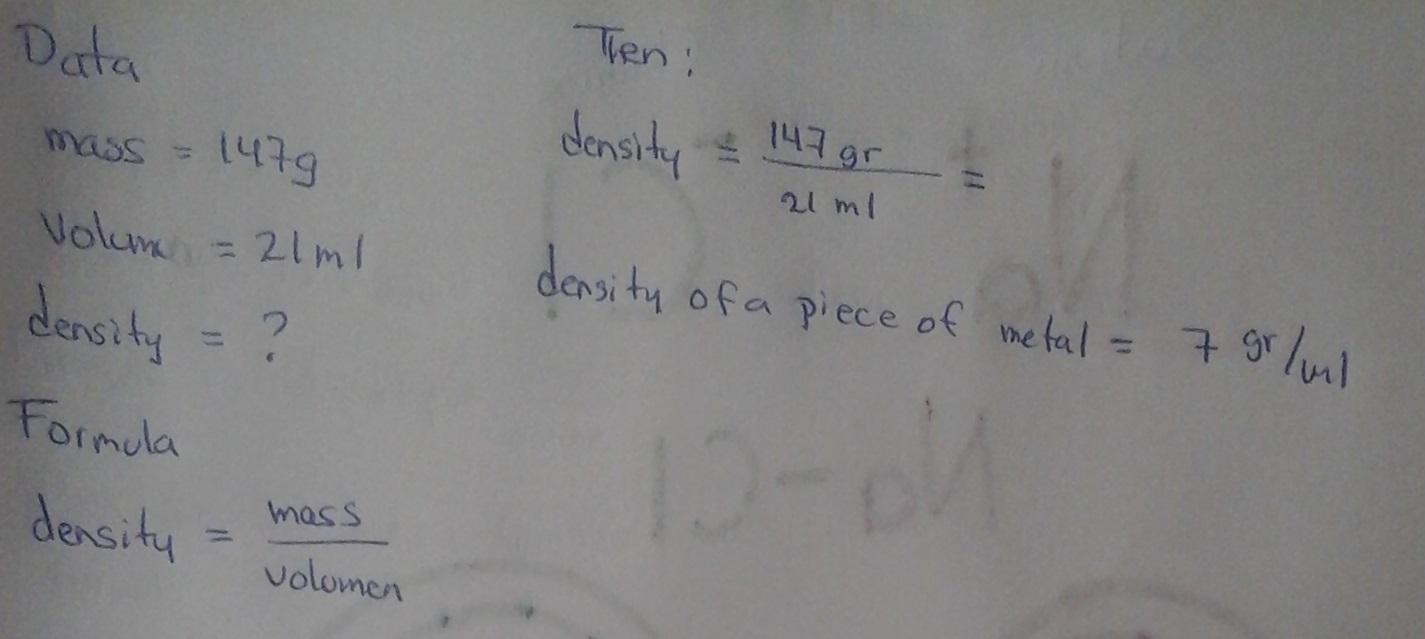 Data
mass = 147g
Volume = 21 ml
density = ?
Formula
density = mass
volumen
Then:
density = 147 gr =
21 ml
density of a piece of metal = 7 gr/ml
Na
Cl
Na-Cl